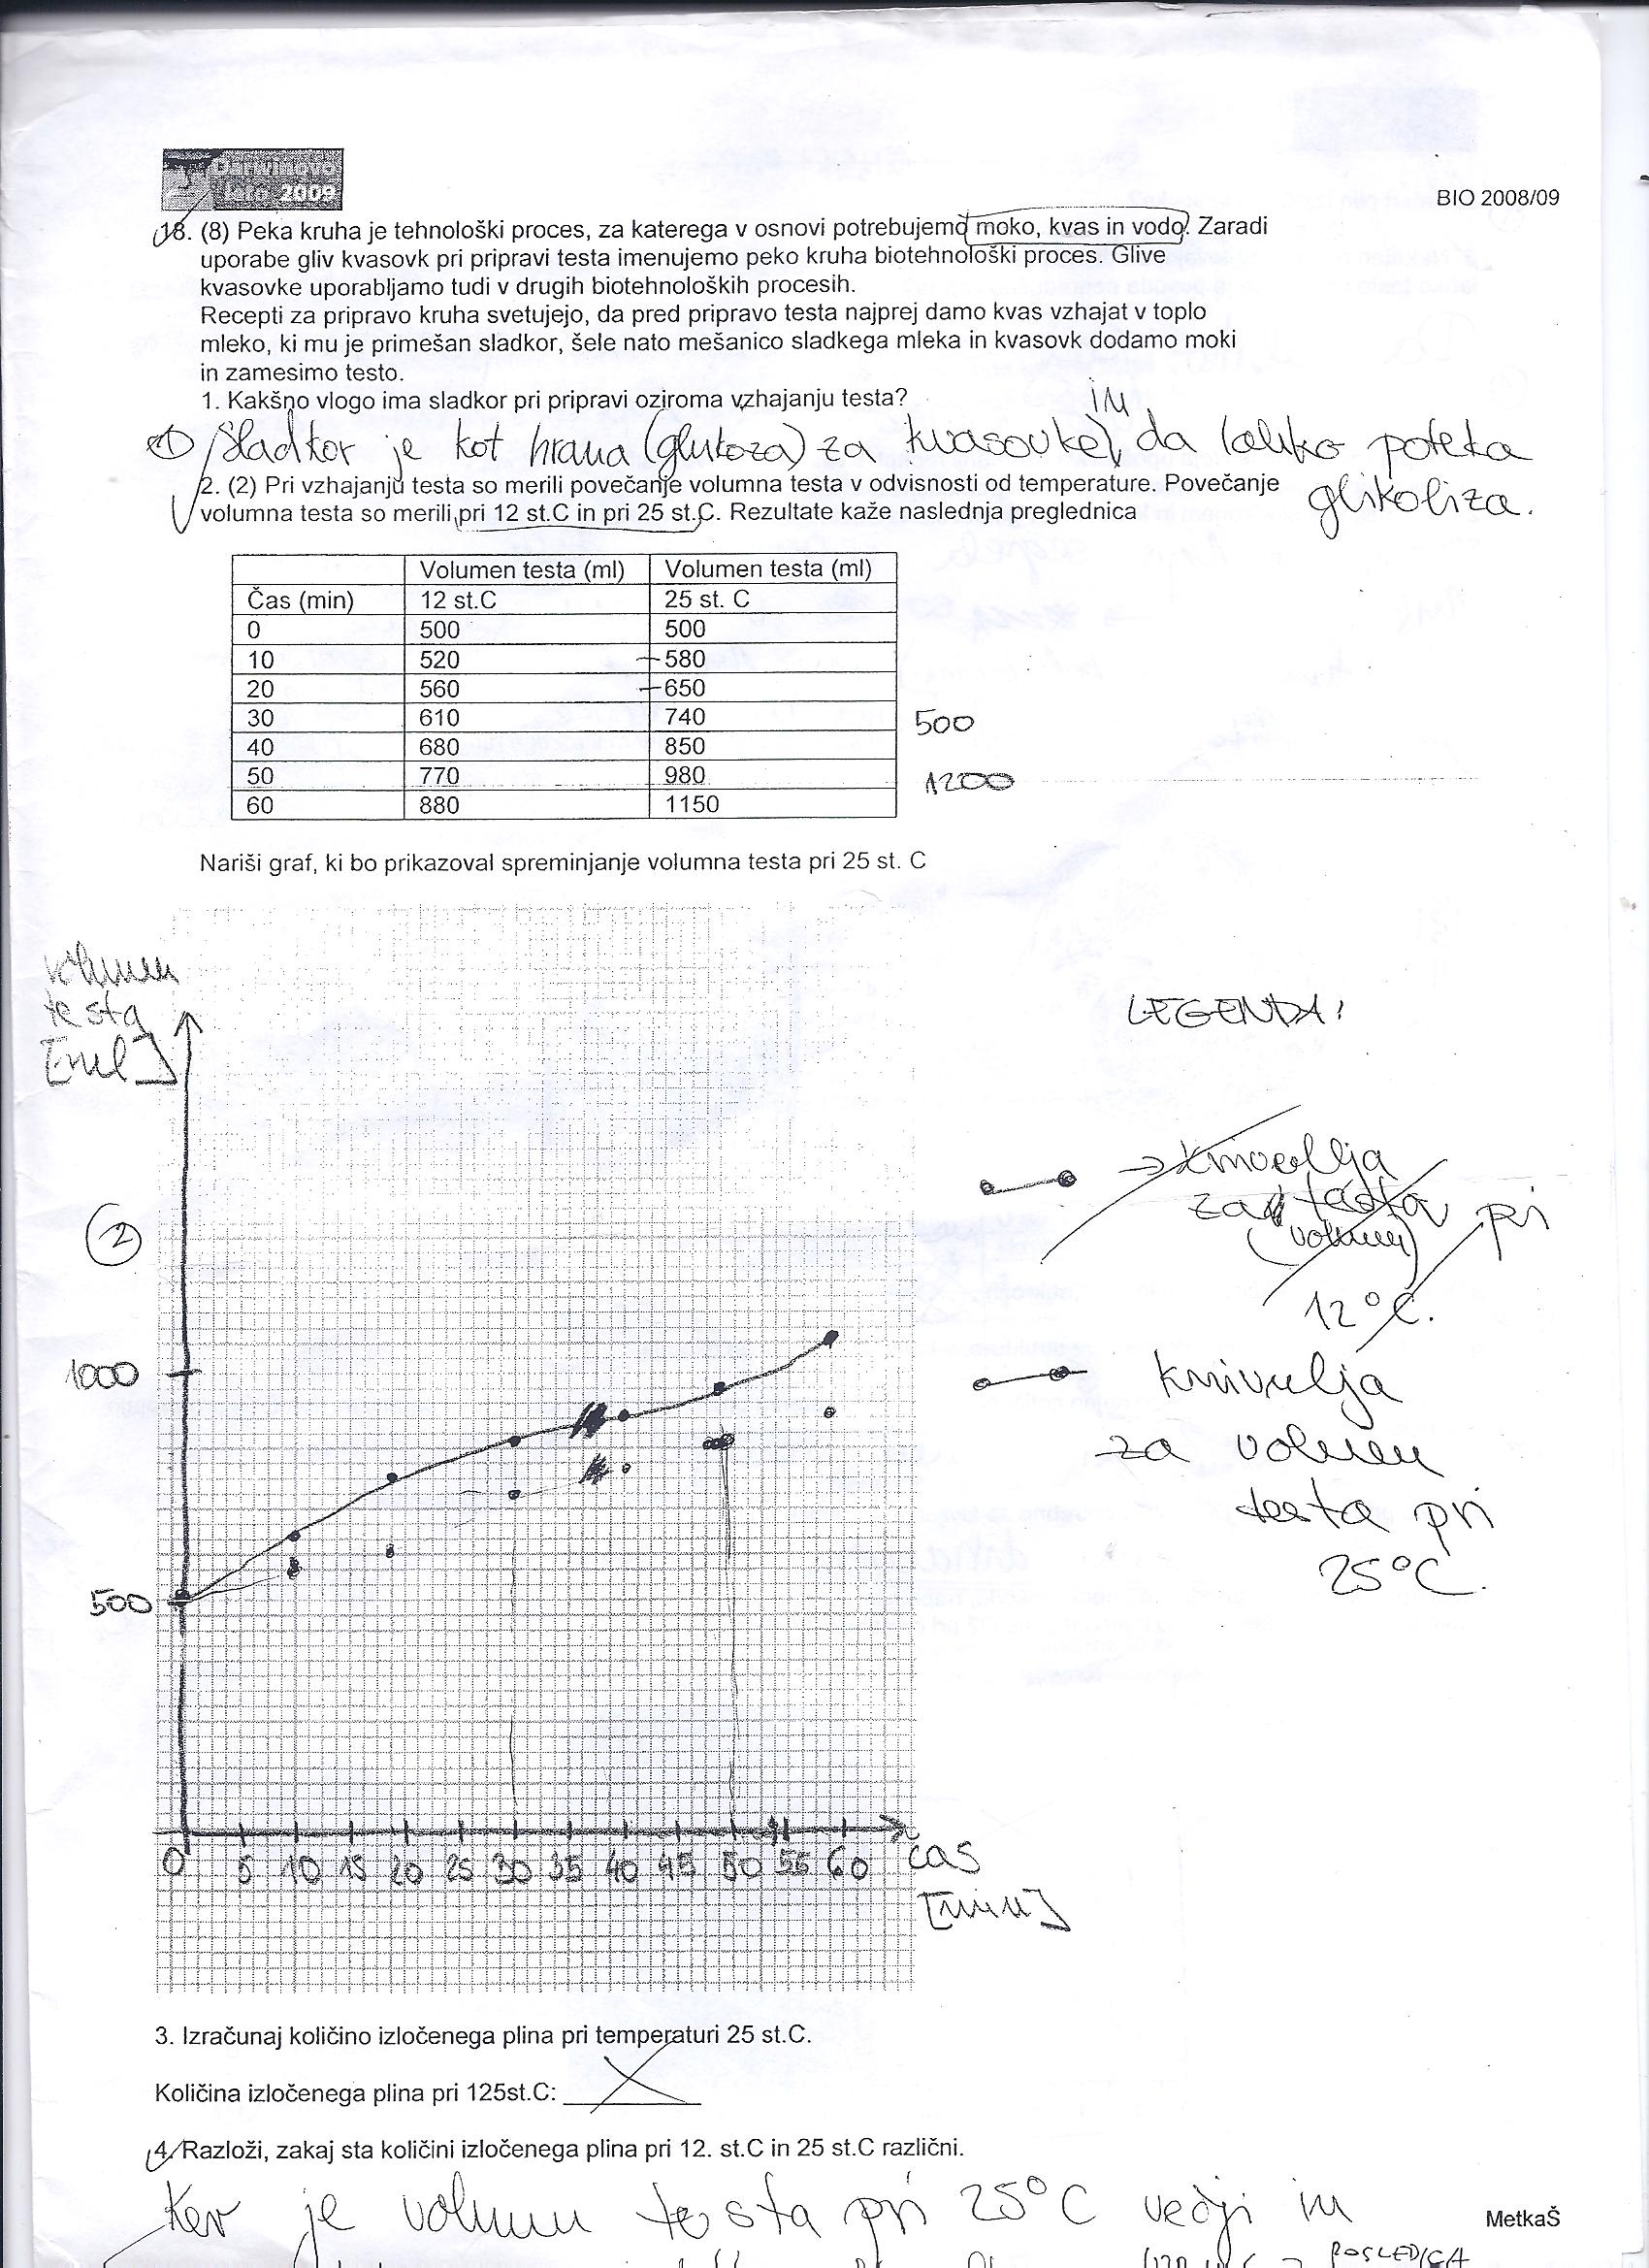 Darwinovo
leto 2009
BIO 2008/09
18. (8) Peka kruha je tehnološki proces, za katerega v osnovi potrebujemo moko, kvas in vodo. Zaradi
uporabe gliv kvasovk pri pripravi testa imenujemo peko kruha biotehnološki proces. Glive
kvasovke uporabljamo tudi v drugih biotehnoloških procesih.
Recepti za pripravo kruha svetujejo, da pred pripravo testa najprej damo kvas vzhajat v toplo
mleko, ki mu je primešan sladkor, šele nato mešanico sladkega mleka in kvasovk dodamo moki
in zamesimo testo.
1. Kakšno vlogo ima sladkor pri pripravi oziroma vzhajanju testa?
in
1 Sladkor je kot hrana (glukoza) za kvasovke, da lahko poteka
glikoliza.
2. (2) Pri vzhajanju testa so merili povečanje volumna testa v odvisnosti od temperature. Povečanje
volumna testa so merili pri 12 st.C in pri 25 st.C. Rezultate kaže naslednja preglednica
Volumen testa (ml) Volumen testa (ml)
Čas (min) 12 st.C 25 st. C
0 500 500
10 520 580
20 560 650
30 610 740
40 680 850
50 770 980
60 880 1150
500
1200
Nariši graf, ki bo prikazoval spreminjanje volumna testa pri 25 st. C
volumen
testa
[ml]
LEGENDA:
krivulja
za testa pri
(volumen)
12°C.
2
1000
krivulja
za volumen
testa pri
25°C.
500
0 5 10 15 20 25 30 35 40 45 50 55 60 čas
[min]
3. Izračunaj količino izločenega plina pri temperaturi 25 st.C.
Količina izločenega plina pri 125st.C:
4. Razloži, zakaj sta količini izločenega plina pri 12. st.C in 25 st.C različni.
Ker je volumn testa pri 25°C večji in
MetkaŠ
POSLEDICA